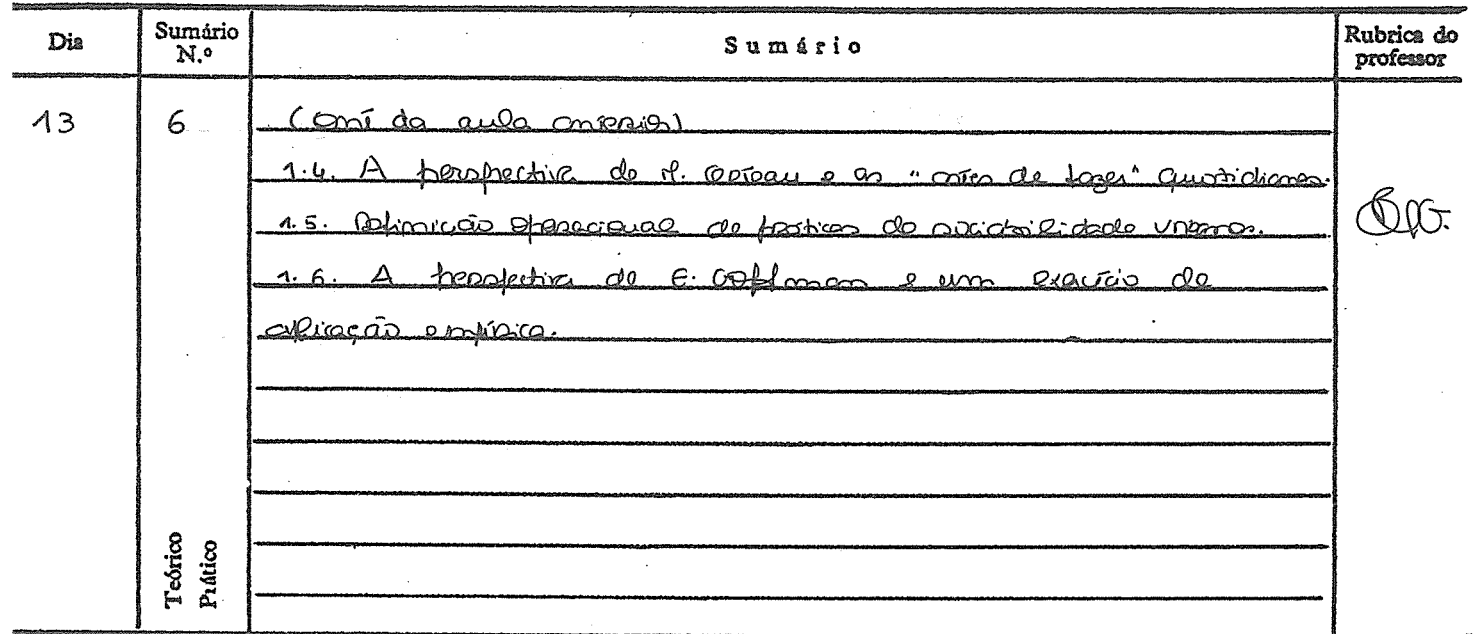 Dia
Sumário N.º
Sumário
Rubrica do professor
13
6
(Cont da aula anterior)
1.4. A perspectiva de M. Certeau e as "artes de fazer" quotidianas.
1.5. Definição operacional de práticas de sociabilidade urbanas.
1.6. A perspectiva de E. Goffman e um exercício de
aplicação empírica.
Teórico
Prático